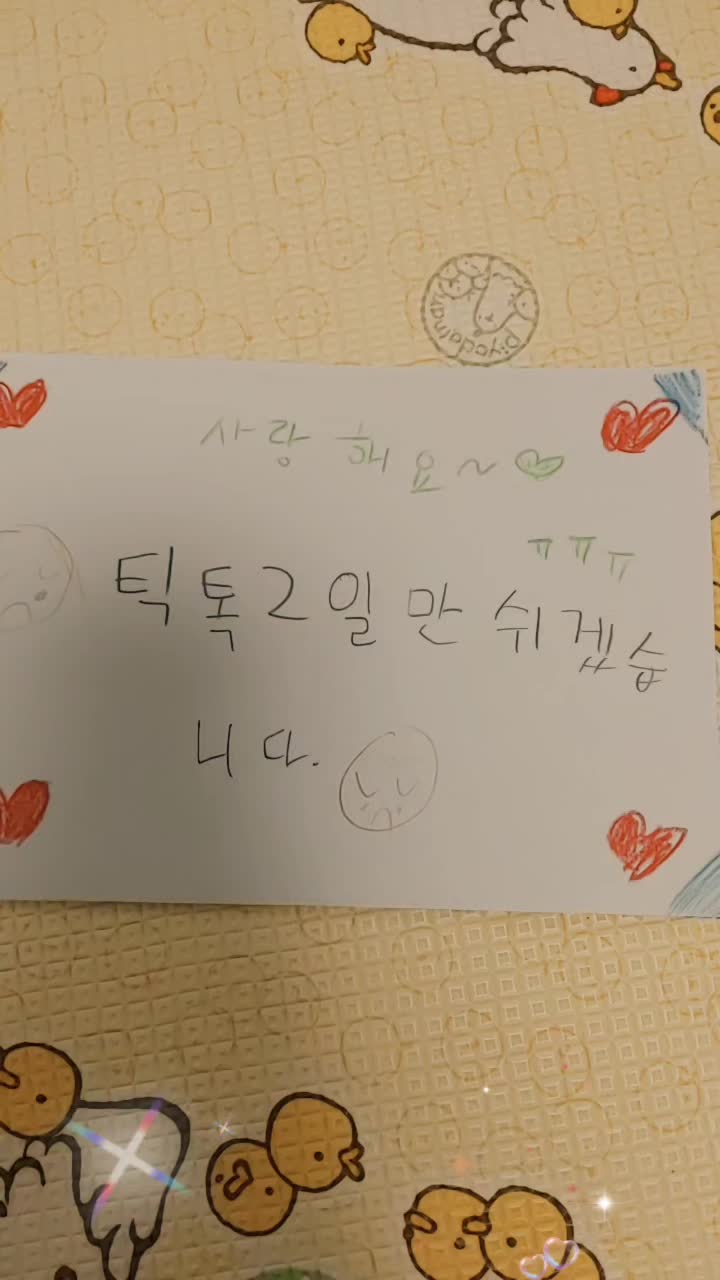 사랑해요~♡
ㅠㅠㅠ
틱톡2일만 쉬겠습
니다.
piyodamari